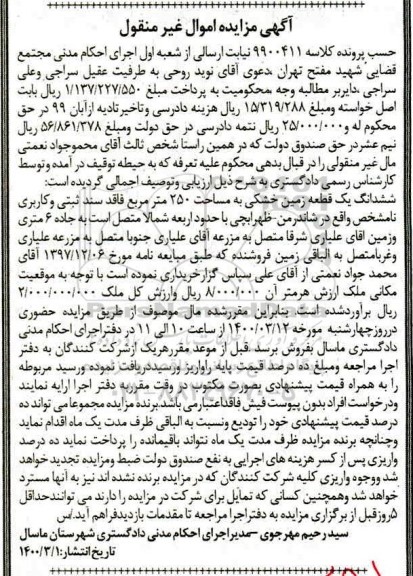 آگهی مزایده اموال غیر منقول
حسب پرونده کلاسه ۹۹۰۰۴۱۱ نیابت ارسالی از شعبه اول اجرای احکام مدنی مجتمع
قضایی شهید مفتح تهران ،دعوی آقای نوید روحی به طرفیت عقیل سراجی وعلی
سراجی ،دایربر مطالبه وجه ،محکومیت به پرداخت مبلغ ۱/۱۳۷/۲۲۷/۵۵۰ ریال بابت
اصل خواسته ومبلغ ۱۵/۳۱۹/۲۸۸ ریال هزینه دادرسی وتاخیرتادیه ازآبان ۹۹ در حق
محکوم له و۲۵/۰۰۰/۰۰۰ نتمه دادرسی در حق دولت ومبلغ ۵۶/۸۶۱/۳۷۸ ریال
نیم عشردر حق صندوق دولت که در همین راستا شخص ثالث آقای محموجواد نعمتی
مال غیر منقولی را در قبال بدهی محکوم علیه تعرفه که به حیطه توقیف در آمده وتوسط
کارشناس رسمی دادگستری به شرح ذیل ارزیابی وتوصیف اجمالی گردیده است:
ششدانگ یک قطعه زمین خشکی به مساحت ۲۵۰ متر مربع فاقد سند ثبتی وکاربری
نامشخص واقع در شاندرمن -طهرابچی با حدود اربعه شمالا متصل است به جاده ۶ متری
وزمین آقای علیاری شرقا متصل به مزرعه آقای علیاری جنوبا متصل به مزرعه علیاری
وغربامتصل به الباقی زمین فروشنده که طبق مبایعه نامه مورخ ۱۳۹۷/۱۲/۰۶ آقای
محمد جواد نعمتی از آقای علی سپاس گزار خریداری نموده است با توجه به موقعیت
مکانی ملک ارزش هرمتر آن ۸/۰۰۰/۰۰۰ ریال وارزش کل ملک ۲/۰۰۰/۰۰۰/۰۰۰
ریال برآوردشده است .بنابراین مقررشده مال موصوف از طریق مزایده حضوری
درروزچهارشنبه مورخه ۱۴۰۰/۰۳/۱۲ از ساعت ۱۰ الی ۱۱ در دفتراجرای احکام مدنی
دادگستری ماسال بفروش برسد .قبل از موعد مقررهریک ازشرکت کنندگان به دفتر
اجرا مراجعه ومبلغ ده درصد قیمت پایه راواریز ورسیددریافت نموده ورسید مربوطه
را به همراه قیمت پیشنهادی بصورت مکتوب در وقت مقرربه دفتر اجرا ارایه نمایند
ودرخواست افراد بدون پیوست فیش فاقداعتبارمی باشد.برنده مزایده مجموعا می تواند ده
درصد قیمت پیشنهادی خود را تودیع ونسبت به الباقی ظرف مدت یک ماه اقدام نماید
وچنانچه برنده مزایده ظرف مدت یک ماه نتواند باقیمانده را پرداخت نماید ده درصد
واریزی پس از کسر هزینه های اجرایی به نفع صندوق دولت ضبط ومزایده تجدید خواهد
شد ووجوه واریزی کلیه شرکت کنندگان که در مزایده برنده نشده اند نیز به آنها مسترد
خواهد شد وهمچنین کسانی که تمایل برای شرکت در مزایده را دارند می توانندحداقل
۵روزقبل از برگزاری مزایده به دفتراجرا مراجعه تا مقدمات بازدیدفراهم آید.اس
سید رحیم مهرجوی -مدیراجرای احکام مدنی دادگستری شهرستان ماسال
تاریخ انتشار:۱۴۰۰/۳/۱